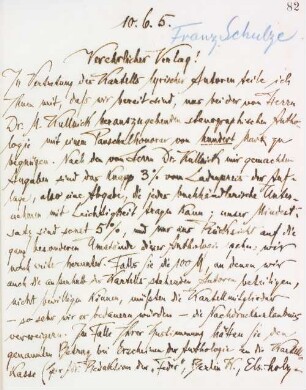 82
10. 6. 5.
Franz Schulze.
Verehrlicher Verlag!
In Vertretung des Kartells lyrischer Autoren teile ich
Ihnen mit, daß wir bereit sind, uns bei der von Herrn
Dr. M. herauszugebenden stenographischen Antho-
logie mit einem Pauschalhonorar von hundert Mark zu
begnügen. Nach den vom Herrn Dr. mir gemachten
Angaben sind das knapp 3% vom Ladenpreis der Auf-
lage, also eine Abgabe, die jedes buchhändlerische Unter-
nehmen mit Leichtigkeit tragen kann; unser Mindest-
satz sind sonst 5%, und nur aus Rücksicht auf die
ganz besonderen Umstände dieser Anthologie gehn wir
so weit herunter. Falls Sie die 100 M, an denen wir
auch die außerhalb des Kartells stehenden Autoren beteiligen,
nicht bewilligen können, müßten die Kartellmitglieder
— so sehr wir es bedauern würden — die Nachdruckserlaubnis
verweigern. Im Falle Ihrer Zustimmung hätten Sie den
genannten Betrag bei Erscheinen der Anthologie an die Kartell-
Kasse (per Redaktion der "Feder", Berlin W., Elsholz-